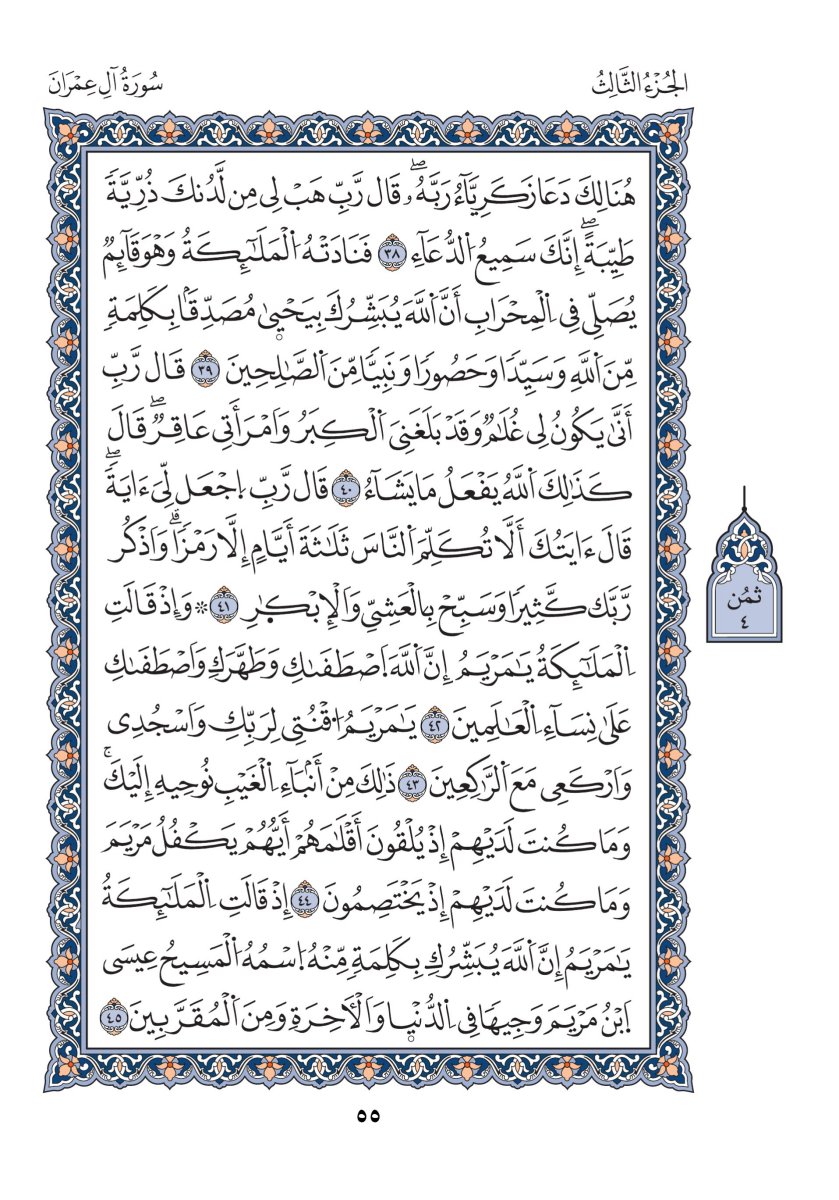 الجُزْءُ الثَّالِثُ
سُورَةُ آلِ عِمْرَانَ
هُنَالِكَ دَعَا زَكَرِيَّآءُ رَبَّهُۥۖ قَالَ رَبِّ هَبْ لِى مِن لَّدُنكَ ذُرِّيَّةٗ
طَيِّبَةًۖ إِنَّكَ سَمِيعُ اُ۬لدُّعَآءِ ٣٨ فَنَادَتْهُ اُ۬لْمَلَٰٓئِكَةُ وَهْوَ قَآئِمٞ
يُصَلِّى فِى اِ۬لْمِحْرَابِ أَنَّ اَ۬للَّهَ يُبَشِّرُكَ بِيَحْيۭىٰ مُصَدِّقَۢا بِكَلِمَةٖ
مِّنَ اَ۬للَّهِ وَسَيِّدٗا وَحَصُورٗا وَنَبِيّٗا مِّنَ اَ۬لصَّٰلِحِينَ ٣٩ قَالَ رَبِّ
أَنَّىٰ يَكُونُ لِى غُلَٰمٞ وَقَدْ بَلَغَنِىَ اَ۬لْكِبَرُ وَامْرَأَتِى عَاقِرٞۖ قَالَ
كَذَٰلِكَ اَ۬للَّهُ يَفْعَلُ مَا يَشَآءُ ٤٠ قَالَ رَّبِّ اِ۪جْعَل لِّىَ ءَايَةٗۖ
قَالَ ءَايَتُكَ أَلَّا تُكَلِّمَ اَ۬لنَّاسَ ثَلَٰثَةَ أَيَّامٍ إِلَّا رَمْزٗاۗ وَاذْكُر
رَّبَّكَ كَّثِيرٗا وَسَبِّحْ بِالْعَشِىِّ وَالْإِبْكٰٜرِ ٤١ ۞ وَإِذْ قَالَتِ
اِ۬لْمَلَٰٓئِكَةُ يَٰمَرْيَمُ إِنَّ اَ۬للَّهَ اَ۪صْطَفَىٰكِ وَطَهَّرَكِ وَاصْطَفَىٰكِ
عَلَىٰ نِسَآءِ اِ۬لْعَٰلَمِينَ ٤٢ يَٰمَرْيَمُ اُ۟قْنُتِى لِرَبِّكِ وَاسْجُدِى
وَارْكَعِى مَعَ اَ۬لرَّٰكِعِينَ ٤٣ ذَٰلِكَ مِنْ أَنۢبَآءِ اِ۬لْغَيْبِ نُوحِيهِ إِلَيْكَۚ
وَمَا كُنتَ لَدَيْهِمْ إِذْ يُلْقُونَ أَقْلَٰمَهُمْ أَيُّهُمْ يَكْفُلُ مَرْيَمَ
وَمَا كُنتَ لَدَيْهِمْ إِذْ يَخْتَصِمُونَ ٤٤ إِذْ قَالَتِ اِ۬لْمَلَٰٓئِكَةُ
يَٰمَرْيَمُ إِنَّ اَ۬للَّهَ يُبَشِّرُكِ بِكَلِمَةٖ مِّنْهُ اُ۪سْمُهُ اُ۬لْمَسِيحُ عِيسَى
اَ۪بْنُ مَرْيَمَ وَجِيهٗا فِى اِ۬لدُّنْيۭا وَالْأٓخِرَةِ وَمِنَ اَ۬لْمُقَرَّبِينَ ٤٥
ثُمُن
٤
٥٥